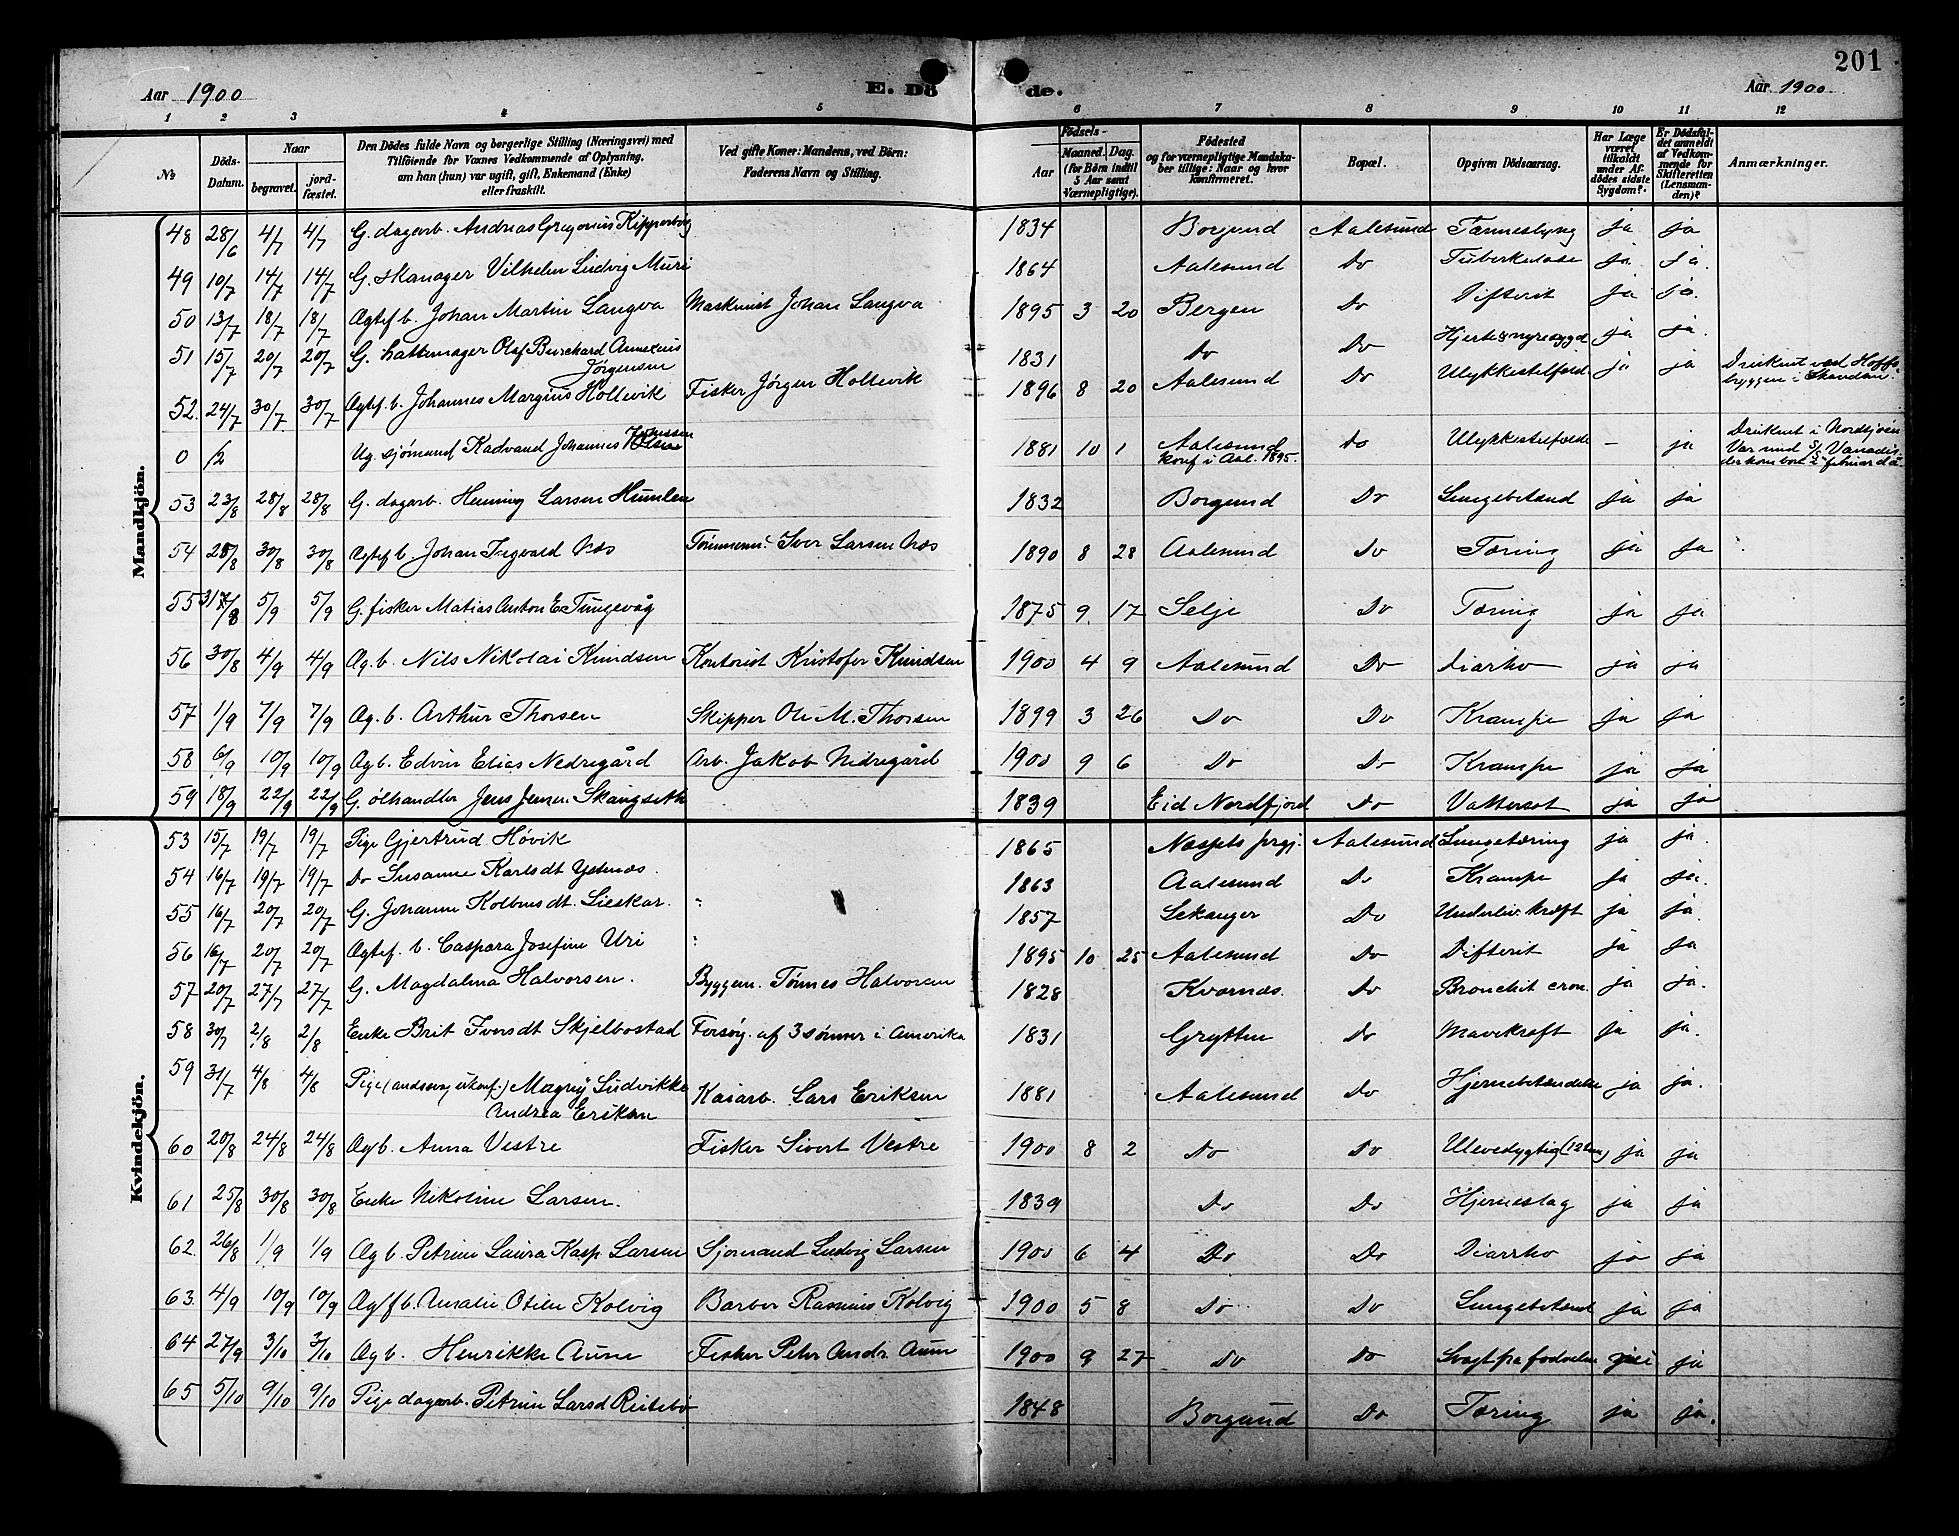 201
Aar 1900
E. Dö
de.
Aar 1900
1 2 3 4 5 6 7 8 9 10 11 12
№
Döds-
Datum.
Naar
begravet.
jord-
fæstet.
Den Dödes fulde Navn og borgerlige Stilling (Næringsvei) med
Tilföiende for Voxnes Vedkommende af Oplysning,
om han (hun) var ugift, gift, Enkemand (Enke)
eller fraskilt.
Ved gifte Koner: Mandens, ved Börn:
Faderens Navn og Stilling.
Födsels-
Aar
Maaned. Dag.
(for Börn indtil
5 Aar samt
Værnepligtige).
Födested
og for værnepligtige Mandska-
ber tillige: Naar og hvor
konfirmeret.
Bopæl.
Opgiven Dödsaarsag.
Har Læge
været
tilkaldt
under Af-
dödes sidste
Sygdom?
Er Dödsfal-
det anmeldt
af Vedkom-
mende for
Skifteretten
(Lensman-
den)?
Anmærkninger.
Mandkjön.
48 28/6 4/7 4/7 G. dagarb. Andreas Gregorius 1834 Borgund Aalesund ja ja
49 10/7 14/7 14/7 G. Vilhelm Ludvig Muri 1864 Aalesund Do Tuberkulose ja ja.
50 13/7 18/7 18/7 Ægtef b. Johan Martin Langva Maskinist Johan Langva 1895 3 20 Bergen Do Difterit ja ja.
51 15/7 20/7 20/7 G. hattemager Olaf Burchard
Jørgensen 1831 Do Do ja ja.
52. 24/7 30/7 30/7 Ægtef. b. Johannes Margius Hollevik Fisker Jørgen Hollevik 1896 8 20 Aalesund Do Ulykkestilfæld ja ja Druknet ved
byggen i
0 /2 Ug. sjømand Johannes 1881 10 1 Aalesund Do Ulykkestilfælde – ja Druknet i Nordsjøen
konf i Aal. 1895. Var med S/S
februar d.å
53 23/8 28/8 28/8 G. dagarb. Henning Larsen Humlen 1832 Borgund Do Lungebetænd ja ja
54 28/8 30/8 30/8 Ægtef b. Johan Ingvald Næs Iver Larsen Næs 1890 8 28 Aalesund Do Tæring ja ja
55 31/8 5/9 5/9 G. fisker Matias Anton E Tungevåg 1875 9 17 Selje Do Tæring ja ja
56 30/8 4/9 4/9 Æg. b. Nils Nikolai Knudsen Kontorist Kristofer Knudsen 1900 4 9 Aalesund Do ja ja
57 1/9 7/9 7/9 Æg. b. Arthur Thorsen Skipper Ole M. Thorsen 1899 3 26 Do Do Krampe ja ja
58 6/9 10/9 10/9 Æg b. Edvin Elias Nedregård Arb. Jakob Nedregård 1900 9 6 Do Do Krampe ja ja
59 18/9 22/9 22/9 G. ølhandler Jens Jensen Skaugseth 1839 Eid Nordfjord Do Vattersot ja ja
Kvindekjön.
53 15/7 19/7 19/7 Pige Gjertrud Høvik 1865 Næssets prgj. Aalesund Lungetæring ja ja.
54 16/7 19/7 19/7 Do Susanne Karlsdt Ystenæs. 1863 Aalesund Do Krampe ja ja.
55 16/7 20/7 20/7 G. Johanne 1857 Lekanger Do Underlivskræft ja ja.
56 16/7 20/7 20/7 Ægtef. b. Caspara Josefine Uri 1895 10 25 Aalesund Do Difterit ja ja
57 20/7 27/7 27/7 G. Magdalena Halvorsen. Byggem. Tønnes Halvorsen 1828 Kvernæs. Do Bronchit cron. ja ja.
58 30/7 2/8 2/8 Enke Brit Iversdt Skjelbostad Forsøg. af 3 sønner i Amerika 1831 Grytten Do Mavekræft ja ja.
59 31/7 4/8 4/8 Pige Ludvikke
Andrea Eriksen Lars Eriksen 1881 Aalesund Do Hjernebetændelse ja ja.
60 20/8 24/8 24/8 Æg b. Anna Vestre Fisker Sivert Vestre 1900 8 2 Do Do Ulevedygtig ja ja
61 25/8 30/8 30/8 Enke Nikoline Larsen. 1839 Do Do Hjerneslag ja ja
62. 26/8 1/9 1/9 Æg b. Petrine Laura Kasp. Larsen Sjømand Ludvig Larsen 1900 6 4 Do Do ja ja
63. 4/9 10/9 10/9 Amalie Otilie Kolvig Barber Rasmus Kolvig 1900 5 8 Do Do Lungebetænd ja ja
64 27/9 3/10 3/10 Æg b. Henrikke Aune Fisker Peter Andr. Aune 1900 9 27 Do Do Svagt fra fødselen ja
65 5/10 9/10 9/10 Pige dagarb. Petrine Larsd 1848 Borgund Do Tæring ja ja.